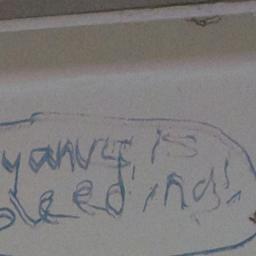 yanus is
bleeding!